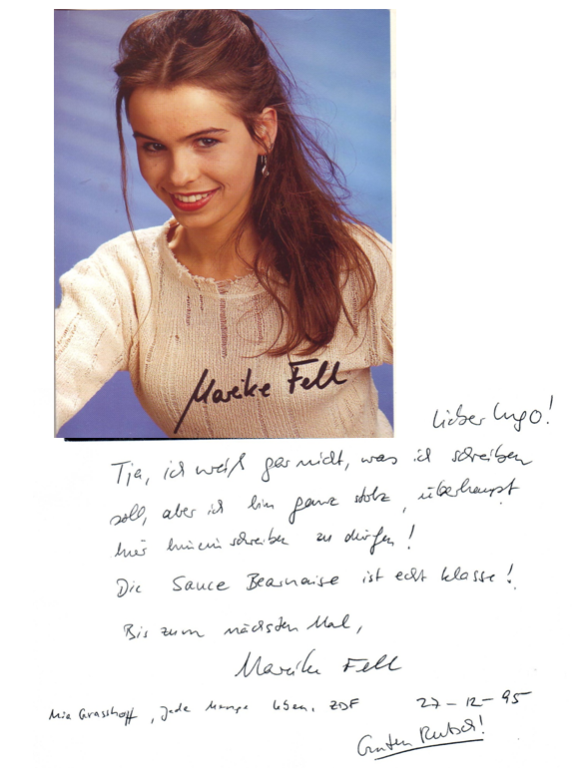 Marike Fell
Lieber Ingo!
Tja, ich weiß gar nicht, was ich schreiben
soll, aber ich bin ganz stolz, überhaupt
hier hinein schreiben zu dürfen!
Die Sauce Bearnaise ist echt klasse!
Bis zum nächsten Mal,
Marike Fell
Mia Grasshoff, Jede Menge Leben, ZDF
27-12-95
Guten Rutsch!